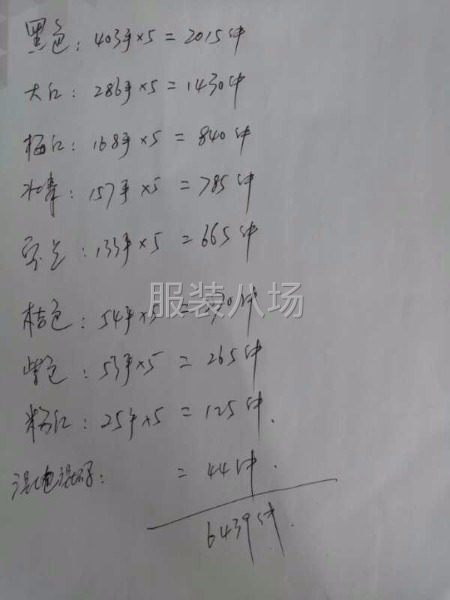 黑色：403手×5＝2015件
大红：286手×5＝1430件
梅红：168手×5＝840件
：157手×5＝785件
宝兰：133手×5＝665件
桔色：54手×5＝270件
服装八场
紫色：53手×5＝265件
粉红：25手×5＝125件.
混色混码：＝44件.
6439件.